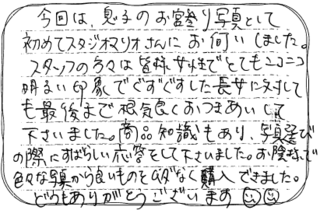 今回は、息子のお宮参り写真として
初めてスタジオマリオさんにお伺いしました。
スタッフの方々は皆様女性でとてもニコニコ
明るい印象でぐずぐずした長女に対して
も最後まで根気良くおつきあいして
下さいました。商品知識もあり、写真選び
の際にすばらしい応答をして下さいました。お陰様で
色々な写真から良いものをムダなく購入できました。
どうもありがとうございます